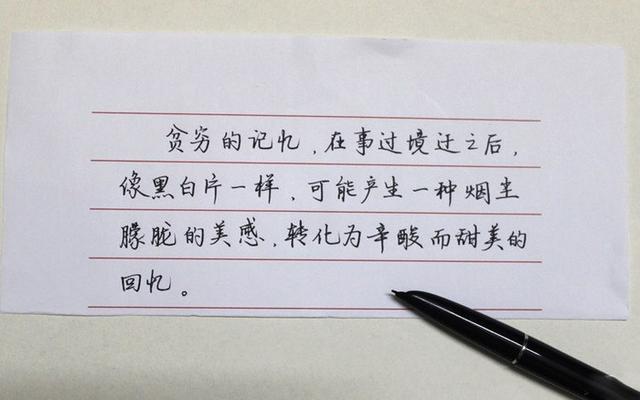 贫穷的记忆，在事过境迁之后，
像黑白片一样，可能产生一种烟尘
朦胧的美感，转化为辛酸而甜美的
回忆。